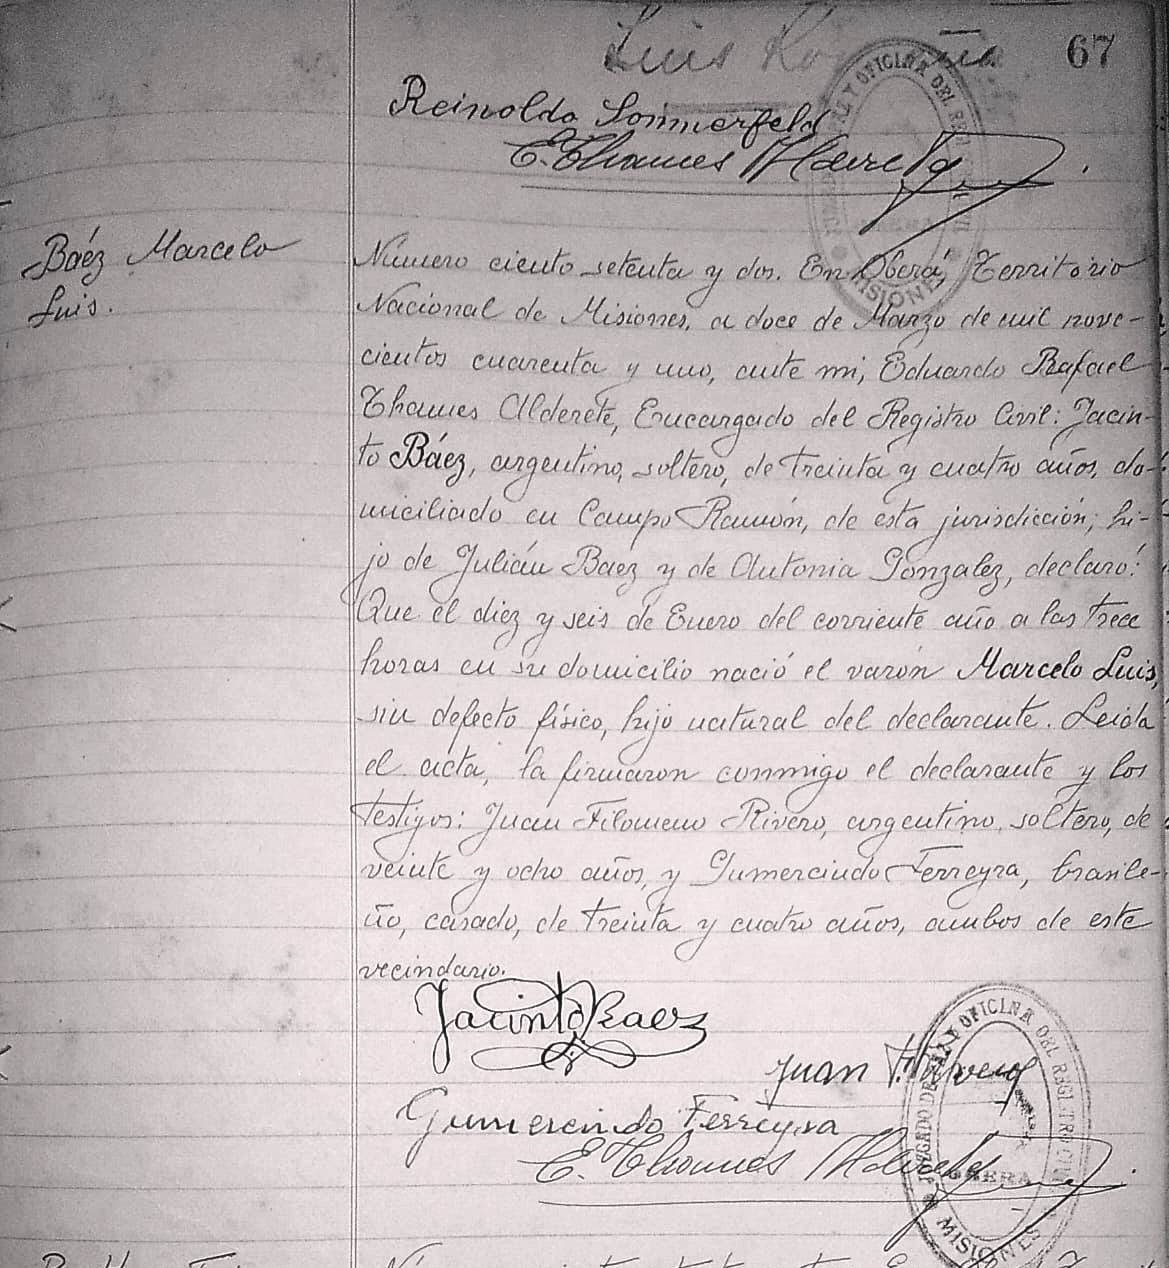 67
Luis
Reinoldo Sommerfeld
E. Thames Alderete
JUZGADO DE PAZ Y OFICINA DEL REGISTRO CIVIL
OBERA
MISIONES
Báez Marcelo
Luis.
Número ciento setenta y dos. En Oberá, Territorio
Nacional de Misiones, a doce de Marzo de mil nove-
cientos cuarenta y uno, ante mi, Eduardo Rafael
Thames Alderete, Encargado del Registro Civil: Jacin-
to Báez, argentino, soltero, de treinta y cuatro años, do-
miciliado en Campo Ramón, de esta jurisdicción, hi-
jo de Julián Báez y de Antonia Gonzalez, declaró:
Que el diez y seis de Enero del corriente año a las trece
horas en su domicilio nació el varón Marcelo Luis,
sin defecto físico, hijo natural del declarante. Leida
el acta, la firmaron conmigo el declarante y los
testigos: Juan Filomeno Rivero, argentino, soltero, de
veinte y ocho años, y Gumercindo Ferreyra, brasile-
ño, casado, de treinta y cuatro años, ambos de este
vecindario.
Jacinto Baez
Juan F. Rivero
Gumercindo Ferreyra
E. Thames Alderete
JUZGADO DE PAZ Y OFICINA DEL REGISTRO CIVIL
OBERA
MISIONES